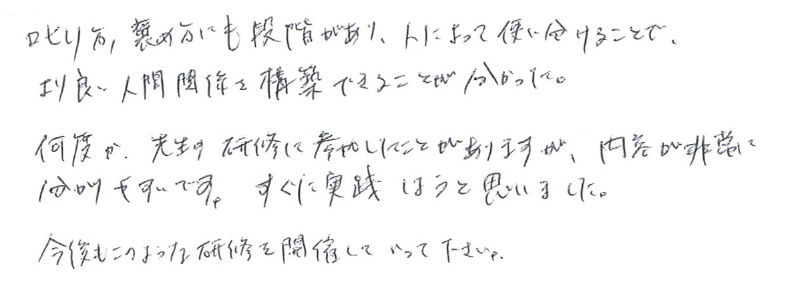 叱り方、褒め方にも段階があり、人によって使い分けることで、
より良い人間関係を構築できることが分かった。
何度か、先生の研修に参加したことがありますが、内容が非常に
分かりやすいです。すぐに実践しようと思いました。
今後もこのような研修を開催していって下さい。